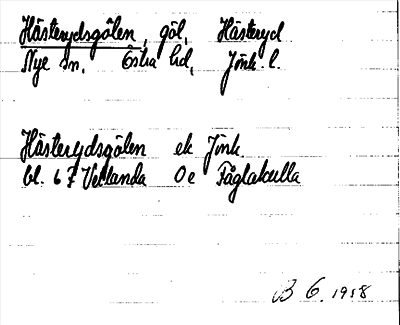 Hästerydsgölen, göl, Hästeryd
Nye sn, Östra hd, Jönk. l.
Hästerydsgölen ek Jönk.
bl. 6 F Vetlanda 0e Fåglakulla
B G. 1958